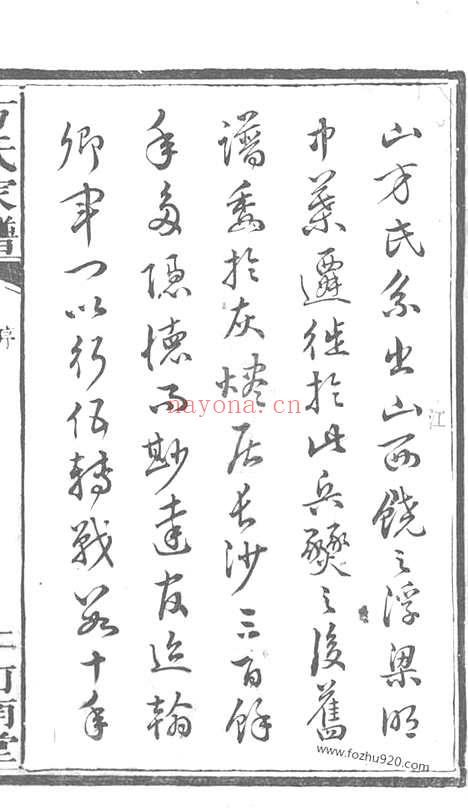 山方氏系出山西饒之浮梁明
中葉遷徙於此兵燹之後舊
譜委於灰燼居長沙三百餘
年多隱德而尠達官迨翰
卿軍門以行伍轉戰數十年
方氏家譜
序
二
河南堂
江
nayona.cn
www.fozhu920.com